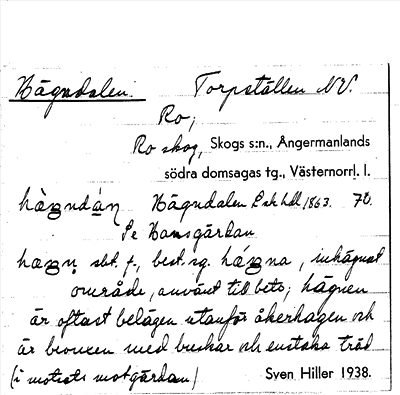 Hägndalen. Torpställen NV.
Ro,
Ro skog, Skogs s:n., Ångermanlands
södra domsagas tg., Västernorrl. l.
Hägndalen L sk hdl 1863. 70.
Se Hansgärdan
sbt. f., best. sg. inhägnat
område, använt till bete; hägnen
är oftast belägen utanför åkerhagen och
är bevuxen med buskar och enstaka träd
(i motsats mot gärdan) Sven Hiller 1938.